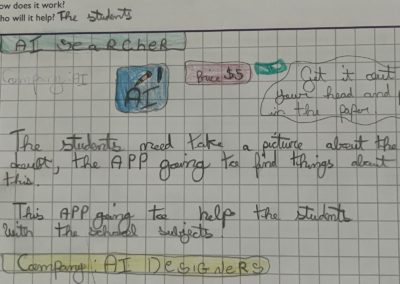 ow does it work!
ho will it help? The students
AI SEARCHER
Company: AI
AI
Price $5
Get it out
your head and p
in the paper
The students need take a picture about the
doubt, the APP going to find things about
this.
This APP going to help the students
with the school subjects.
Company: AI DESIGNERS